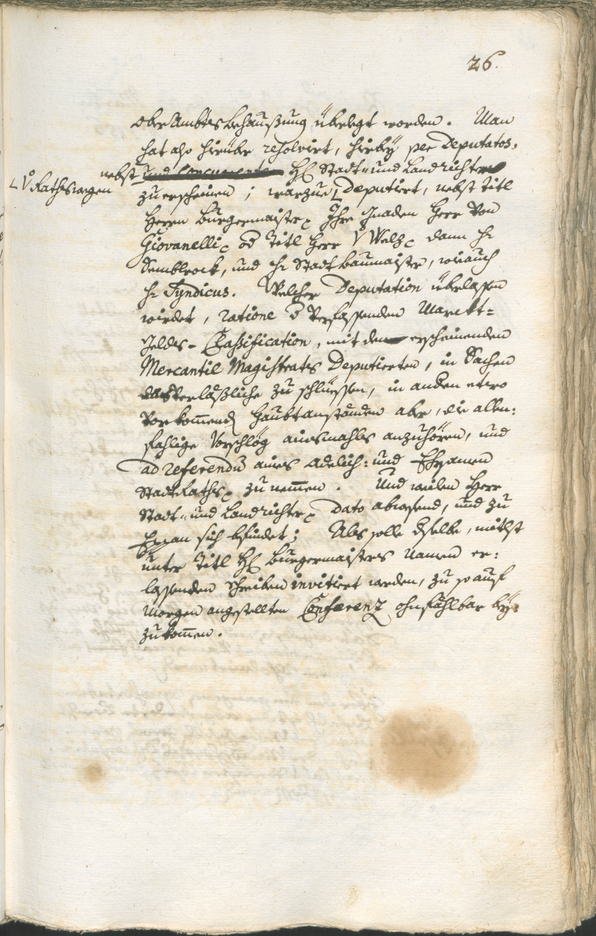 26.
OberAmbtsbehaußung überlegt worden. Man
hat also hierüber resolvirt, hierbey per Deputatos,
nebst H: Stadt- und Landrichter
Raths wegen
zu erscheinen; warzue Deputirt, nebst Titl
Herrn Burgermaister, Ihr Gnaden Herr von
Giovanelli, Titl Herr v Welz, dann H:
Semblrock, und H: Stadtbaumaister, wie auch
H: Syndicus. Welcher Deputation überlassen
wirdet, ratione verfassenden Markt-
gelds-Classification, mit denen erscheinenden
Mercantil Magistrats Deputirten, in Sachen
das verläßliche zu schliessen, in anden etwo
vorkommend Haubtanständen aber, die allen-
fahlige Vorschläg aniezmahls anzuhören, und
ad referendum aines Adelich: und Ehrsamen
Stadt Raths zu nemmen. Und weilen Herr
Stadt- und Landrichter Dato abwesend, und zu
sich befindet; Als solle dselbe, mitlst
unter Titl H: Burgermaisters Namen er-
lassenden Schreiben invitirt werden, zu so auf
Morgen angestellten Conferenz ohnfählbar bey-
zukommen.